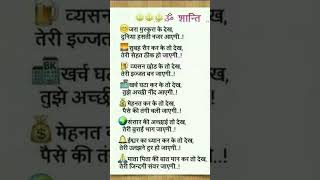 ॐ शान्ति
जरा मुस्कुरा के देख,
दुनिया हसती नजर आएगी..!
सुबह सैर कर के तो देख,
तेरी सेहत ठीक हो जाएगी..!
व्यसन छोड के तो देख,
तेरी इज्जत बन जाएगी..!
खर्च घटा कर के तो देख,
तुझे अच्छी नींद आएगी..!
मेहनत कर के तो देख,
पैसे की तंगी चली जाएगी..!
संसार की अच्छाई तो देख,
तेरी बुराई भाग जाएगी..!
ईश्वर का ध्यान कर के तो देख,
तेरी उलझने दुर हो जाएगी..!
माता पिता की बात मान कर तो देख,
तेरी जिन्दगी संवर जाएगी..!